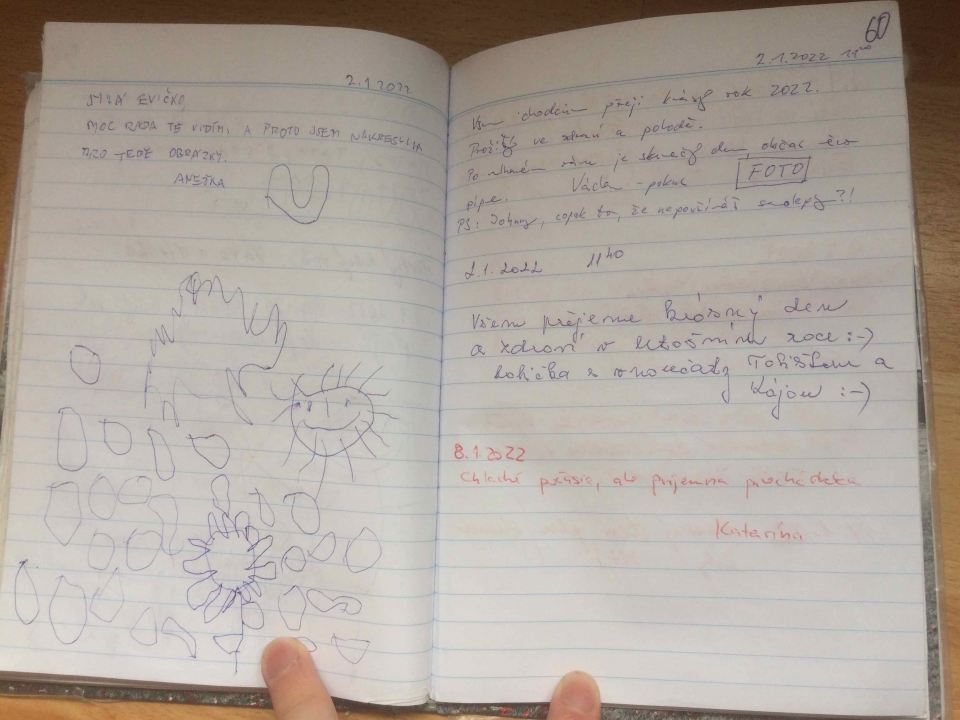 2.1.2022
MILÁ EVIČKO,
MOC RÁDA TĚ VIDÍM, A PROTO JSEM NAKRESLILA
PRO TEBE OBRÁZKY.
ANETKA
60
2.1.2022 11⁰⁰
Všem chodcům přeji krásný rok 2022.
Prožitý ve zdraví a pohodě.
Po ránu je slunečný den, občas
Václav
FOTO
PS: Johny, copak to, že nepoužíváš samolepky?!
2.1.2022 11⁴⁰
Všem přejeme krásný den
a zdraví v letošním roce :-)
babička s vnoučaty Tobiášem a
Kájou :-)
8.1.2022
Chladné počasie, ale príjemná prechádzka
Katarína